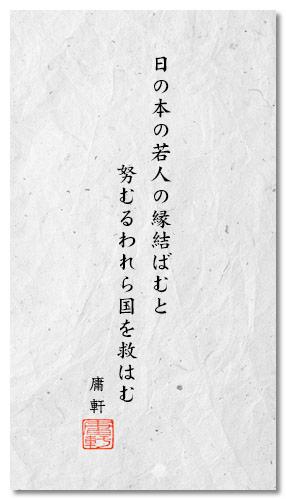 日の本の若人の縁結ばむと
努むるわれら国を救はむ
庸軒
庸軒